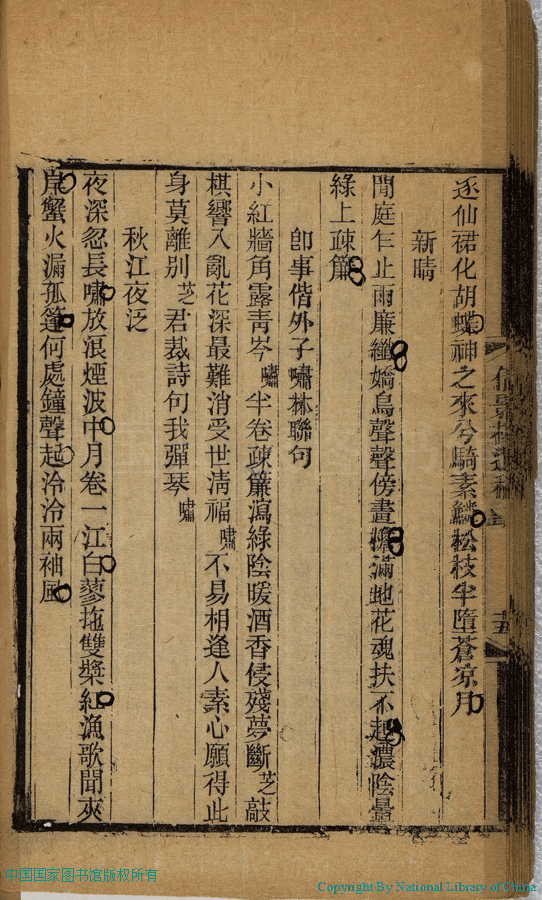 逐仙裙化胡蝶神之來兮騎素鱗松枝半墮蒼凉月
新晴
閒庭乍止雨廉纖嬌鳥聲聲傍畫檐滿地花魂扶不起濃陰暈
綠上疎簾
卽事偕外子嘯林聯句
小紅牆角露靑岑嘯半卷疎簾瀉綠陰暖酒香侵殘夢斷芝敲
棋響入亂花深最難消受世淸福嘯不易相逢人素心願得此
身莫離别芝君裁詩句我彈琴嘯
秋江夜泛
夜深忽長嘯放浪煙波中月卷一江白蓼拖雙槳紅漁歌聞夾
岸蟹火漏孤篷何處鐘聲起泠泠兩袖風
十五
中国国家图书馆版权所有
Copyright By National Library of China